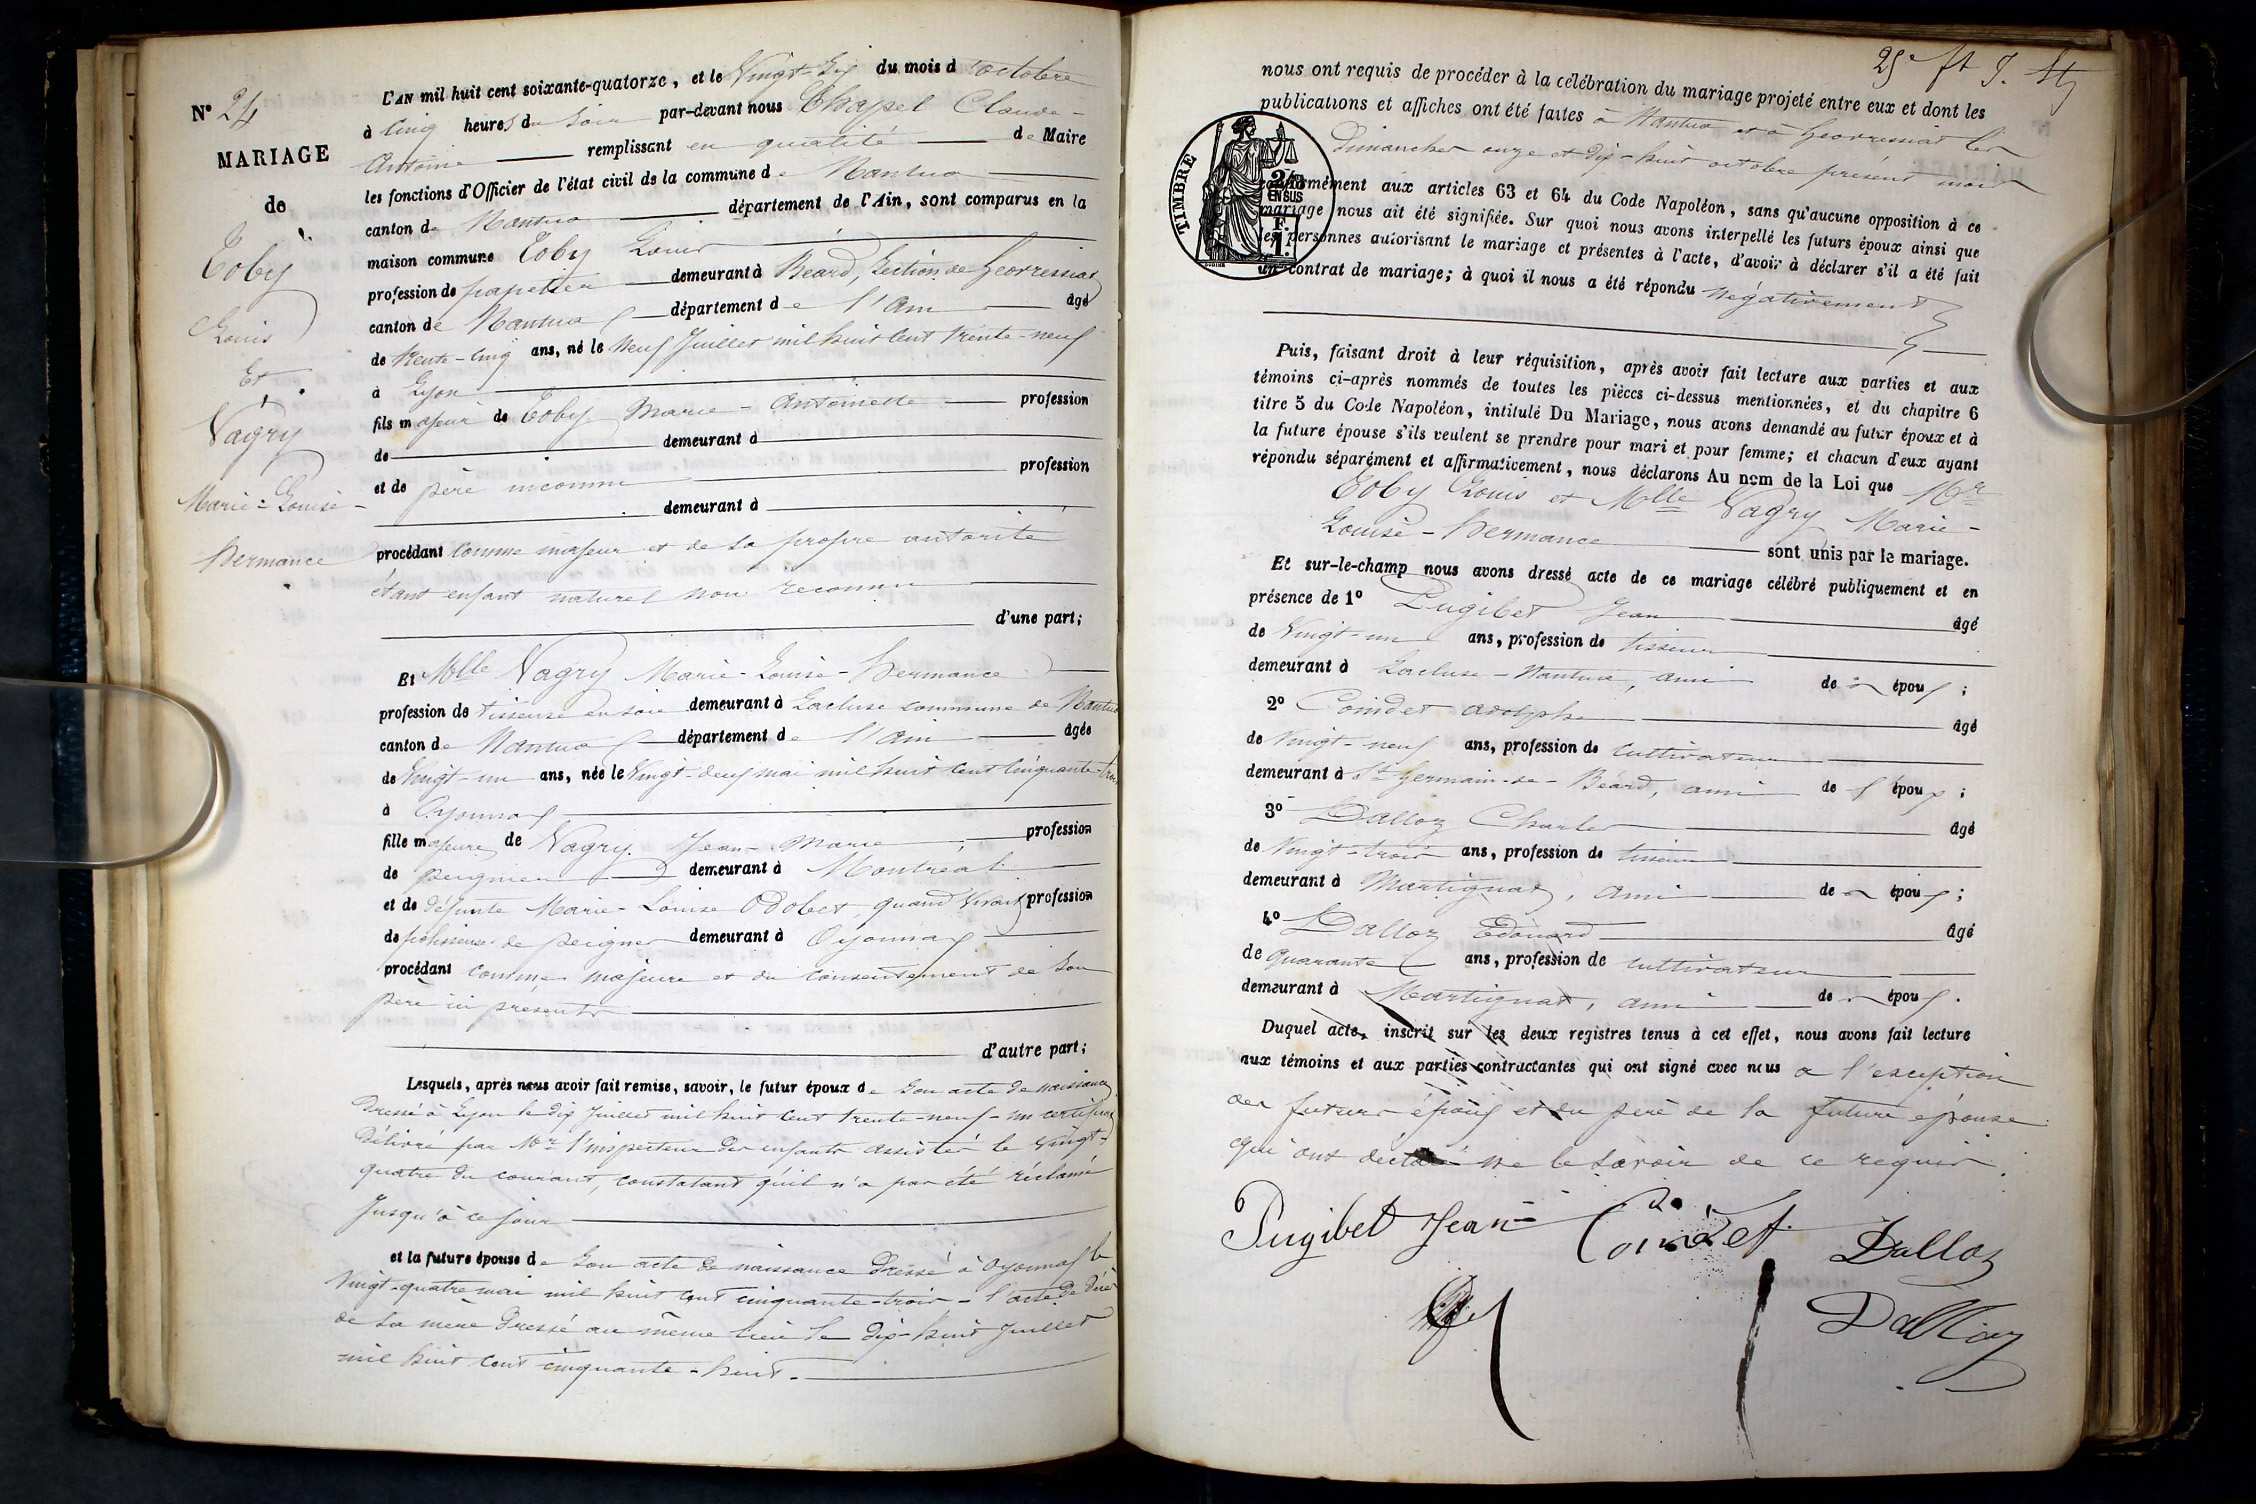 N° 24
MARIAGE
de
Toby
Louis
Et
Vagry
Marie-Louise-
hermance
L'AN mil huit cent soixante-quatorze, et le Vingt-Six du mois d'octobre
à Cinq heures du Soir par-devant nous Chapel Claude-
Antoine remplissant en qualité de Maire
les fonctions d'Officier de l'état civil de la commune de Nantua
canton de Nantua département de l'Ain, sont comparus en la
maison commune Toby Louis
profession de papetier demeurant à Béard, Section de Géovressiat
canton de Nantua département de l'Ain âgé
de trente-Cinq ans, né le Neuf Juillet mil huit Cent trente-neuf
à Lyon
fils majeur de Toby Marie-Antoinette profession
de demeurant à
et de père inconnu profession
demeurant à
procédant Comme majeur et de sa propre autorité
étant enfant naturel non reconnu
d'une part;
Et Mlle Vagry Marie-Louise-hermance
profession de tisseuse en soie demeurant à Lacluse commune de Nantua
canton de Nantua département de l'Ain âgée
de Vingt-un ans, née le Vingt-deux mai mil huit Cent Cinquante-trois
à Oyonnax
fille majeure de Vagry Jean-Marie, profession
de peigneur demeurant à Montréal
et de défunte Marie-Louise Odobet, quand Vivait profession
de polisseuse de peignes demeurant à Oyonnax
procédant comme majeure et du consentement de Son
père ici présent
d'autre part;
Lesquels, après nous avoir fait remise, savoir, le futur époux de Son acte de naissance
Dressé à Lyon le dix Juillet mil huit Cent trente-neuf - un certificat
Délivré par Mr l'inspecteur des enfants assistés le Vingt-
quatre du courant, constatant qu'il n'a pas été réclamé
Jusqu'à ce jour
et la future épouse de Son acte de naissance Dressé à Oyonnax le
Vingt-quatre mai mil huit cent cinquante-trois - l'acte de décès
de Sa mère Dressé au même lieu le Dix-huit Juillet
mil huit Cent cinquante-huit.
nous ont requis de procéder à la célébration du mariage projeté entre eux et dont les
publications et affiches ont été faites à Nantua et à Géovressiat les
Dimanches onze et Dix-huit octobre présent mois
conformément aux articles 63 et 64 du Code Napoléon, sans qu'aucune opposition à ce
mariage nous ait été signifiée. Sur quoi nous avons interpellé les futurs époux ainsi que
les personnes autorisant le mariage et présentes à l'acte, d'avoir à déclarer s'il a été fait
un contrat de mariage; à quoi il nous a été répondu Négativement
TIMBRE
2/10
EN SUS
F.
1.
Puis, faisant droit à leur réquisition, après avoir fait lecture aux parties et aux
témoins ci-après nommés de toutes les pièces ci-dessus mentionnées, et du chapitre 6
titre 5 du Code Napoléon, intitulé Du Mariage, nous avons demandé au futur époux et à
la future épouse s'ils veulent se prendre pour mari et pour femme; et chacun d'eux ayant
répondu séparément et affirmativement, nous déclarons Au nom de la Loi que Mr
Toby Louis et Mlle Vagry Marie-
Louise-hermance sont unis par le mariage.
Et sur-le-champ nous avons dressé acte de ce mariage célébré publiquement et en
présence de 1° Pugibet Jean âgé
de Vingt-un ans, profession de tisseur
demeurant à Lacluse-Nantua, ami de époux;
2° Coindet Adolphe âgé
de Vingt-neuf ans, profession de Cultivateur
demeurant à St Germain-de-Béard, ami de l'époux;
3° Dalloz Charles âgé
de Vingt-trois ans, profession de tisseur
demeurant à Martignat, ami de époux;
4° Dalloz Edouard âgé
de quarante ans, profession de Cultivateur
demeurant à Martignat, ami de époux.
Duquel acte, inscrit sur les deux registres tenus à cet effet, nous avons fait lecture
aux témoins et aux parties contractantes qui ont signé avec nous a l'exception
des futurs époux et du père de la future épouse
qui ont déclaré ne le Savoir de ce requis.
Pugibet Jean Coindet Dalloz
Dalloz